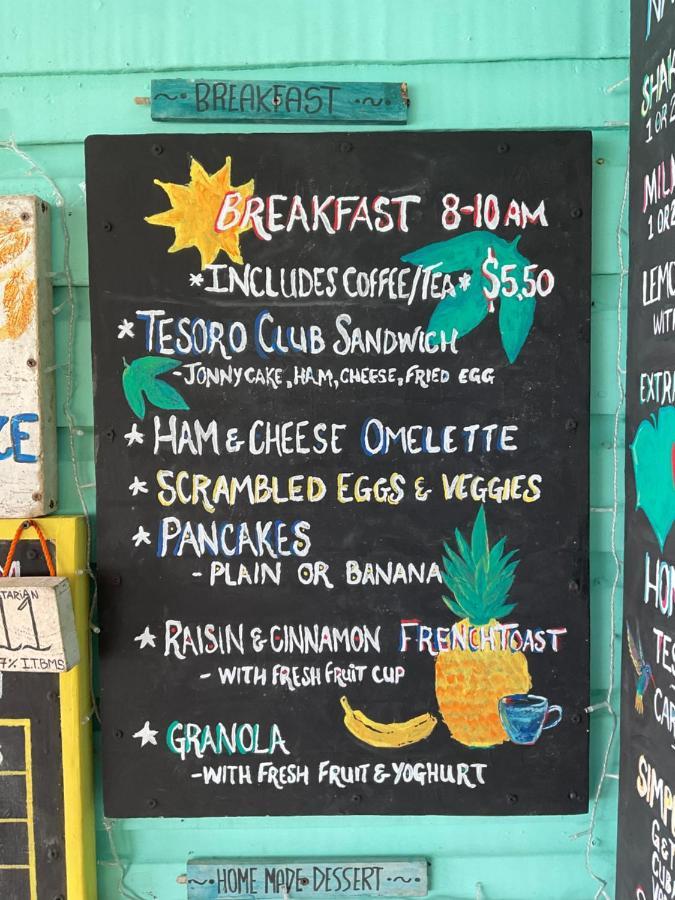 ~ BREAKFAST ~
BREAKFAST 8-10 AM
*INCLUDES COFFEE/TEA* $5,50
* TESORO CLUB SANDWICH
-JONNYCAKE, HAM, CHEESE, FRIED EGG
* HAM & CHEESE OMELETTE
* SCRAMBLED EGGS & VEGGIES
* PANCAKES
- PLAIN OR BANANA
* RAISIN & CINNAMON FRENCHTOAST
- WITH FRESH FRUIT CUP
* GRANOLA
-WITH FRESH FRUIT & YOGHURT
~HOME MADE DESSERT~
11
7% I.T.BMS
1 OR
1 OR